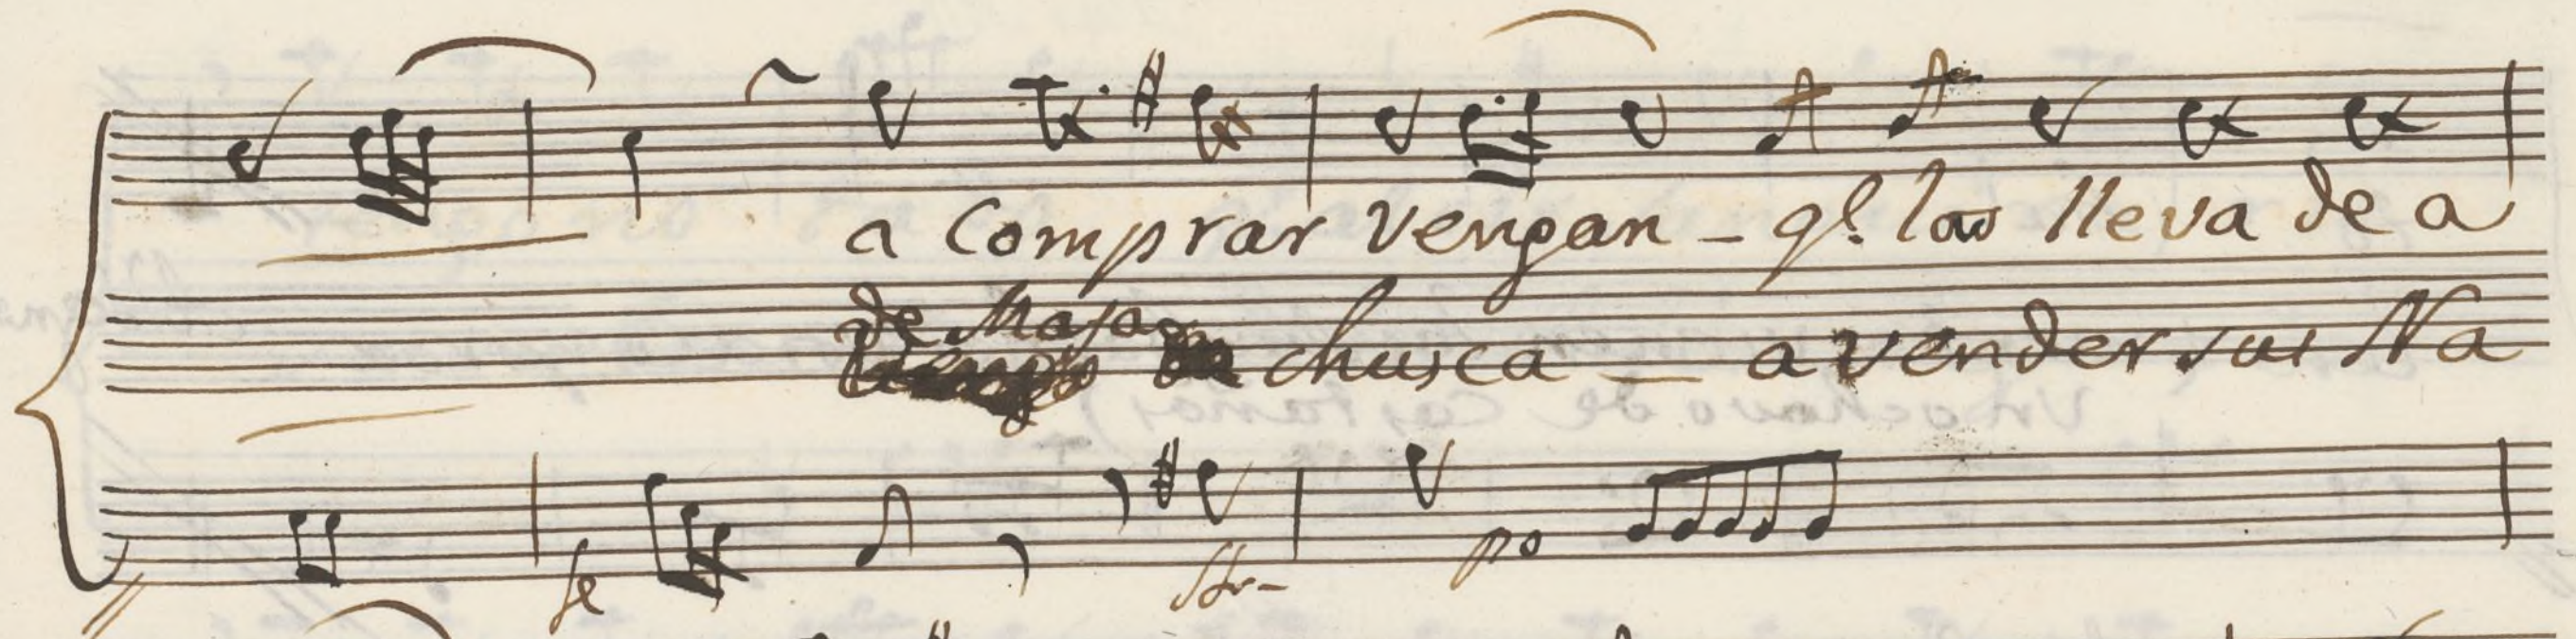 a comprar vengan - qe. las lleva de a
de Maja
chusca - a vender sus Na
fe
po